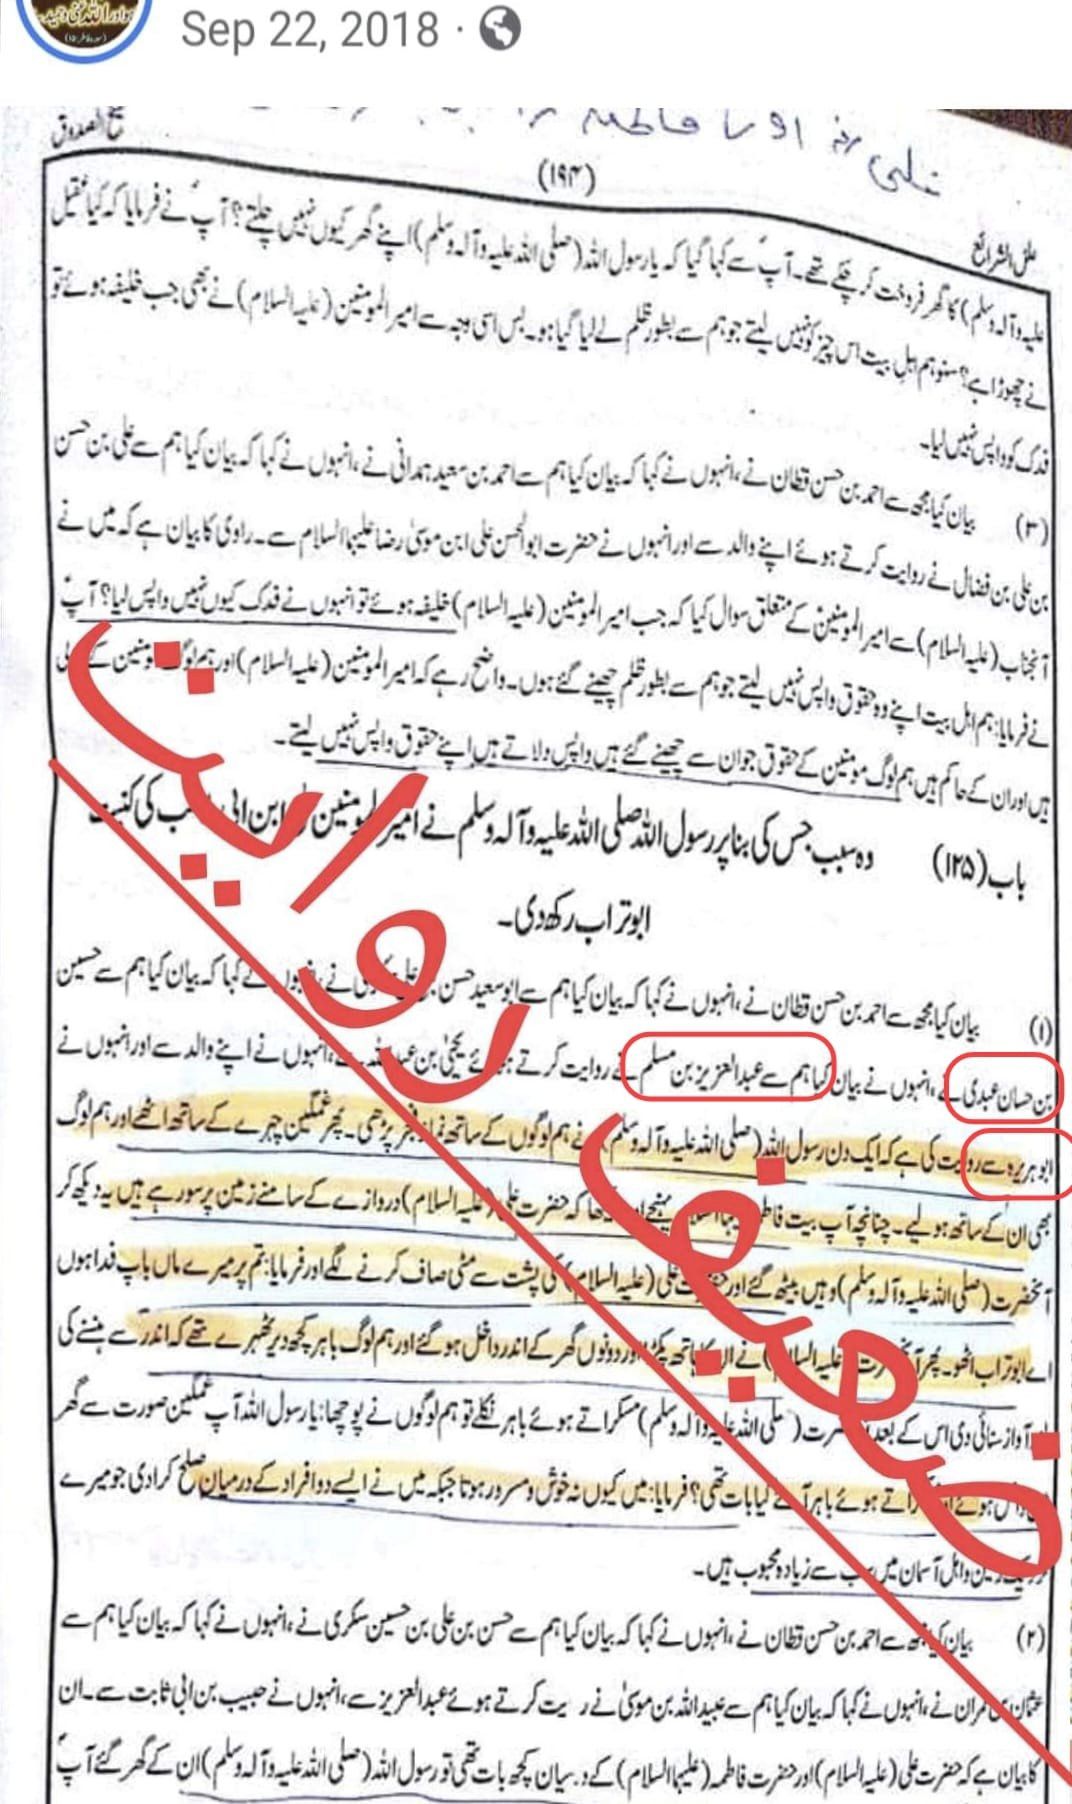 Sep 22, 2018
علی رض اور فاطمہ
شیخ الصدوق
(۱۹۴)
علل الشرائع
علیہ وآلہ وسلم) کا گھر فروخت کر چکے تھے۔ آپؑ سے کہا گیا کہ یا رسول اللہ (صلی اللہ علیہ وآلہ وسلم) اپنے گھر کیوں نہیں چلتے؟ آپؐ نے فرمایا کہ کیا عقیل
نے چھوڑا ہے؟ سنو ہم اہل بیت اس چیز کو نہیں لیتے جو ہم سے بطور ظلم لے لیا گیا ہو۔ بس اسی وجہ سے امیر المومنین (علیہ السلام) نے بھی جب خلیفہ ہوئے تو
فدک کو واپس نہیں لیا۔
(۳) بیان کیا مجھ سے احمد بن حسن قطان نے، انہوں نے کہا کہ بیان کیا ہم سے احمد بن سعید ہمدانی نے، انہوں نے کہا کہ بیان کیا ہم سے علی بن حسن
بن علی بن فضال نے روایت کرتے ہوئے اپنے والد سے اور انہوں نے حضرت ابو الحسن علی ابن موسیٰ رضا علیہما السلام سے۔ راوی کا بیان ہے کہ میں نے
آنجناب (علیہ السلام) سے امیر المومنین کے متعلق سوال کیا کہ جب امیر المومنین (علیہ السلام) خلیفہ ہوئے تو انہوں نے فدک کیوں نہیں واپس لیا؟ آپؑ
نے فرمایا: ہم اہل بیت اپنے وہ حقوق واپس نہیں لیتے جو ہم سے بطور ظلم چھینے گئے ہوں۔ واضح رہے کہ امیر المومنین (علیہ السلام) اور ہم لوگ مومنین کے
ہیں اور ان کے حاکم ہیں ہم لوگ مومنین کے حقوق جو ان سے چھینے گئے ہیں واپس دلاتے ہیں اپنے حقوق واپس نہیں لیتے۔
باب (۱۲۵) وہ سبب جس کی بنا پر رسول اللہ صلی اللہ علیہ وآلہ وسلم نے امیر المومنین ابن ابی کی کنیت
ابو تراب رکھ دی۔
(۱) بیان کیا مجھ سے احمد بن حسن قطان نے، انہوں نے کہا کہ بیان کیا ہم سے ابو سعید حسن بن علی نے، انہوں نے کہا کہ بیان کیا ہم سے حسین
بن حسان عبدی نے، انہوں نے بیان کیا ہم سے عبدالعزیز بن مسلم نے روایت کرتے ہوئے یحییٰ بن عبداللہ سے، انہوں نے اپنے والد سے اور انہوں نے
ابو ہریرہ سے روایت کی ہے کہ ایک دن رسول اللہ (صلی اللہ علیہ وآلہ وسلم) نے ہم لوگوں کے ساتھ نماز فجر پڑھی۔ پھر غمگین چہرے کے ساتھ اٹھے اور ہم لوگ
بھی ان کے ساتھ ہو لیے۔ چنانچہ آپ بیت فاطمہ پہنچے اور دیکھا کہ حضرت علی (علیہ السلام) دروازے کے سامنے زمین پر سو رہے ہیں یہ دیکھ کر
آنحضرت (صلی اللہ علیہ وآلہ وسلم) وہیں بیٹھ گئے اور حضرت علی (علیہ السلام) کی پشت سے مٹی صاف کرنے لگے اور فرمایا: تم پر میرے ماں باپ فدا ہوں
اے ابو تراب اٹھو۔ پھر آنحضرت (علیہ السلام) نے ان کا ہاتھ پکڑا اور دونوں گھر کے اندر داخل ہو گئے اور ہم لوگ باہر کچھ دیر ٹھہرے تھے کہ اندر سے ہنسنے کی
آواز سنائی دی اس کے بعد آنحضرت (صلی اللہ علیہ وآلہ وسلم) مسکراتے ہوئے باہر نکلے تو ہم لوگوں نے پوچھا: یا رسول اللہ آپ غمگین صورت سے گھر
داخل ہوئے اور مسکراتے ہوئے باہر آئے کیا بات تھی؟ فرمایا: میں کیوں نہ خوش و مسرور ہوتا جبکہ میں نے ایسے دو افراد کے درمیان صلح کرا دی جو میرے
نزدیک زمین و اہل آسمان میں سب سے زیادہ محبوب ہیں۔
(۲) بیان کیا مجھ سے احمد بن حسن قطان نے، انہوں نے کہا کہ بیان کیا ہم سے حسن بن علی بن حسین سکری نے، انہوں نے کہا کہ بیان کیا ہم سے
عثمان بن عمران نے، انہوں نے کہا کہ بیان کیا ہم سے عبید اللہ بن موسیٰ نے روایت کرتے ہوئے عبدالعزیز سے، انہوں نے حبیب بن ابی ثابت سے۔ ان
کا بیان ہے کہ حضرت علی (علیہ السلام) اور حضرت فاطمہ (علیہا السلام) کے درمیان کچھ بات تھی تو رسول اللہ (صلی اللہ علیہ وآلہ وسلم) ان کے گھر گئے آپؐ
ضعیف روایت